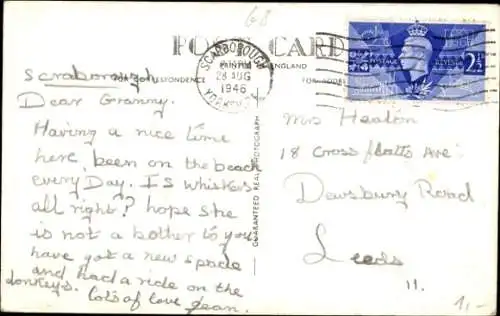 68
POST CARD
SCARBOROUGH
28 AUG
1946
YORKS
ENGLAND
POSTAGE
REVENUE
2½
Scraborough
Dear Granny.
Having a nice time
here, been on the beach
every Day. Is whiskers
all right? hope she
is not a bother to you
have got a new spade
and had a ride on the
donkeys. lots of love Jean.
GUARANTEED REAL PHOTOGRAPH
Mrs Heaton
18 Cross flatts Ave.
Dewsbury Road
Leeds
11.
1,-